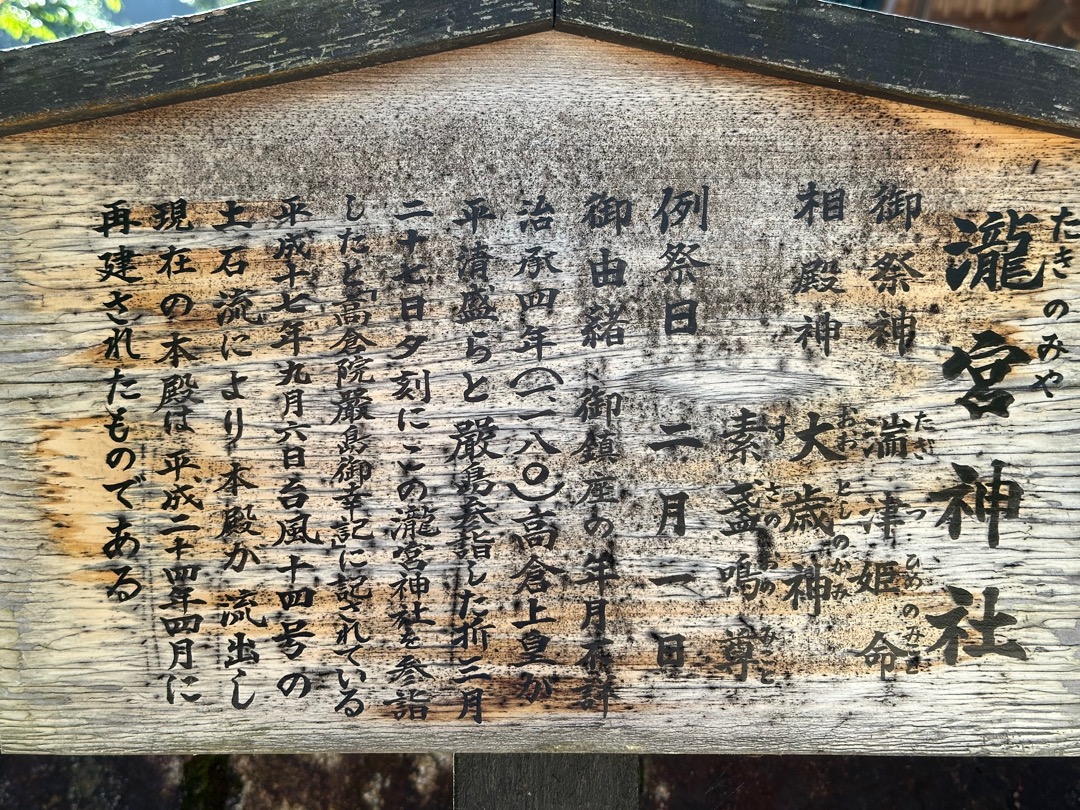 瀧宮神社
たきのみや
御祭神 湍津姫命
たぎつひめのみこと
相殿神 大歳神
おおとしのかみ
素盞嗚尊
すさのおのみこと
例祭日 二月一日
御由緒 御鎮座の年月不詳
治承四年(一一八〇)高倉上皇が
平清盛らと厳島参詣した折三月
二十七日夕刻にこの瀧宮神社を参詣
したと「高倉院厳島御幸記」に記されている
平成十七年九月六日台風十四号の
土石流により本殿が流出し
現在の本殿は平成二十四年四月に
再建されたものである